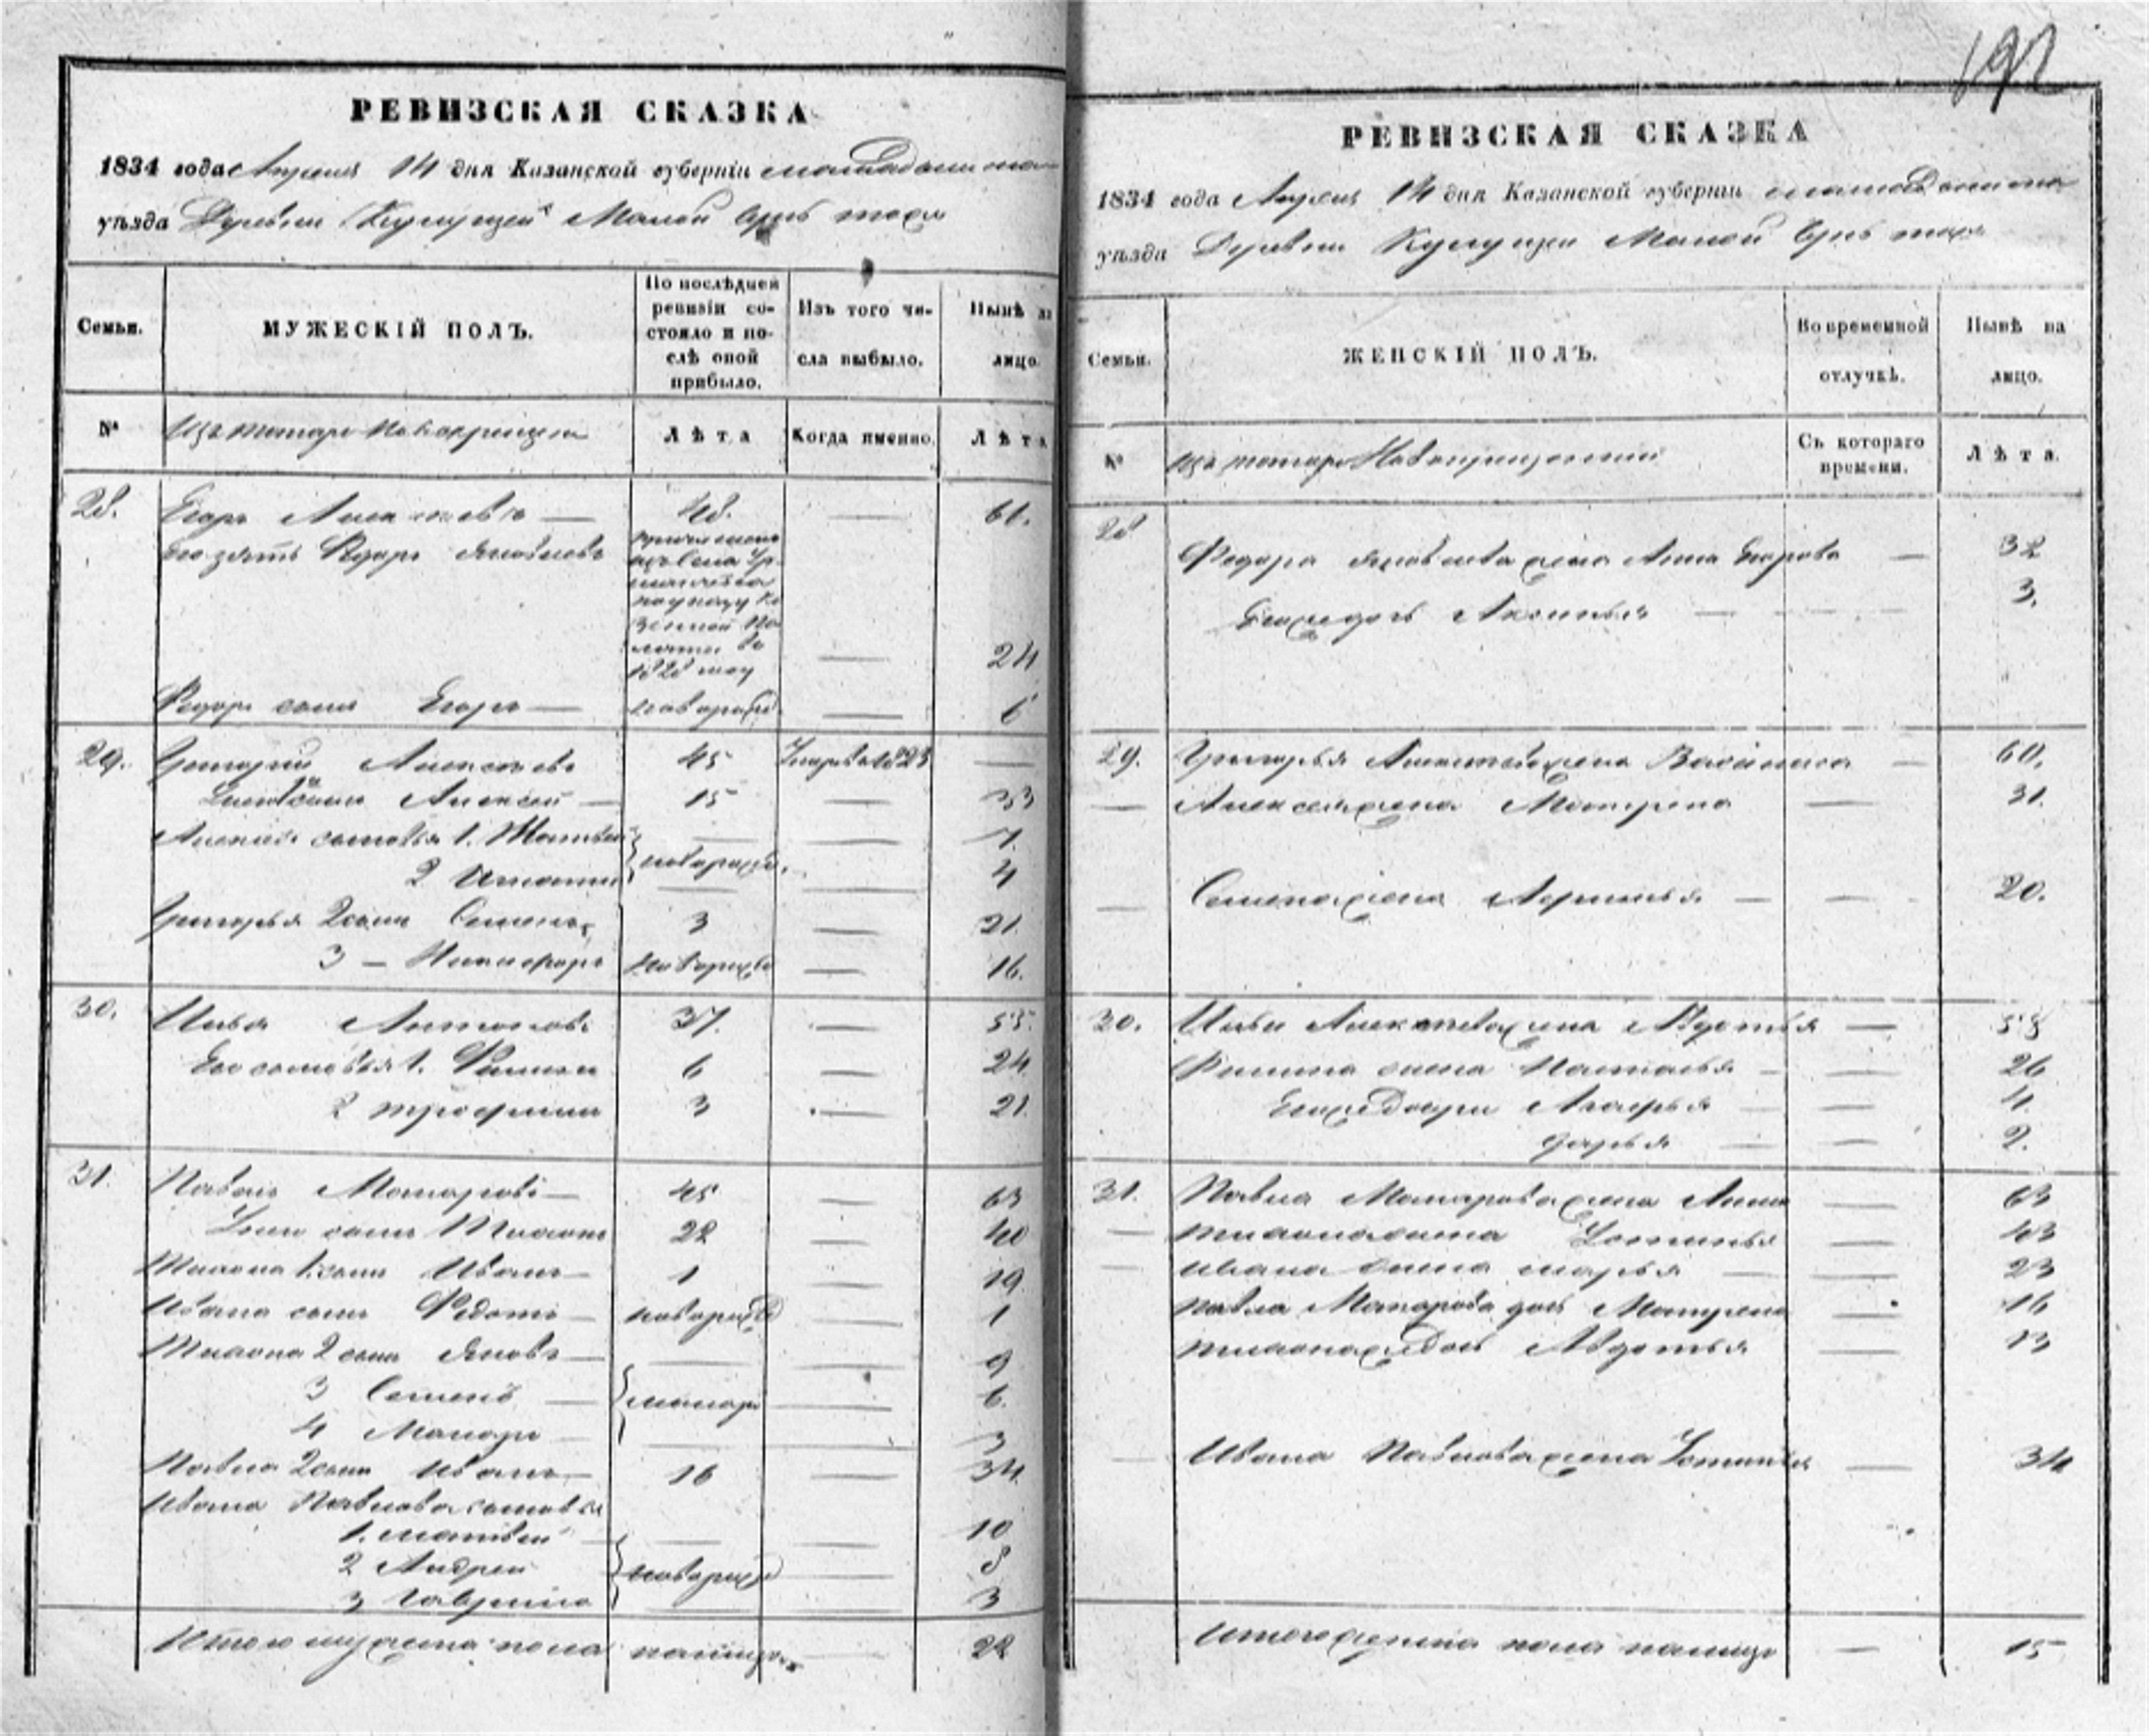 192
РЕВИЗСКАЯ СКАЗКА
1834 года Апреля 14 дня Казанской губерніи мамадышска
уѣзда Деревни Малой тожъ
Семьи.
МУЖЕСКІЙ ПОЛЪ.
По послѣдней ревизіи состояло и послѣ оной прибыло.
Изъ того числа выбыло.
Нынѣ на лицо.
№
Изъ татаръ Новокрещены
Лѣта
Когда именно.
Лѣта
28. Егоръ Алексѣевъ — 48. — 61.
Его зять Федоръ Яковлевъ
1828 году — 24
Федора сынъ Егоръ — новорожд. — 6
29. Григорій Алексѣевъ 45 Умеръ въ 1823 —
сынъ Алексѣй — 15 — 33
Алексѣя сыновья 1. Матвей — 7.
2 Игнатій новорожд. — 4
Григорья 2 сынъ Семенъ 3 — 21.
3 — Никифоръ Новорожд — 16.
30. Илья Антоновъ 37. — 55.
Его сыновья 1. Филипъ 6 — 24
2 трофимъ 3 — 21.
31. Павелъ Макаровъ — 45 — 63
сынъ Миронъ 22 — 40
Мирона 1. сынъ Иванъ — 1 — 19
Ивана сынъ Федотъ — новорожд — 1
Мирона 2 сынъ Яковъ — — 9
3 Семенъ — — 6.
4 Макаръ — — 3
Павла 2 сынъ Иванъ — 16 — 34
Ивана Павлова сыновья
1. матвей — — 10
2 Андрей новорожд — 8
3 Гаврило — 3
Итого мужеска пола налицо — 22
РЕВИЗСКАЯ СКАЗКА
1834 года Апреля 14 дня Казанской губерніи мамадышска
уѣзда Деревни Малой тожъ
Семьи.
ЖЕНСКІЙ ПОЛЪ.
Во временной отлучкѣ.
Нынѣ на лицо.
№
Изъ татаръ Новокрещеныхъ
Съ котораго времени.
Лѣта.
28 Федора Яковлева жена Анна Егорова — 32
Его же дочь Аксинья — 3.
29. Григорья Алексѣева жена Василиса — 60.
— Алексея жена Матрена — 31.
— Семена жена — — 20.
30. Ильи жена Авдотья — 58
Филипа жена Наталья — 26
Его же дочери — 4.
дарья — 2.
31. Павла Макарова жена Анна — 63
— мирона жена Устинья — 43
— ивана жена марья — 23
Павла Макарова дочь Матрена — 16
мирона же дочь Авдотья — 13
— Ивана Павлова жена Устинья — 34
Итого женска пола налицо — 15